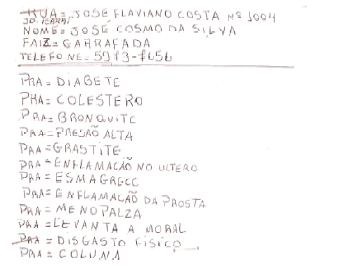 RUA = JOSÉ FLAVIANO COSTA Nº 1004
NOME = JOSÉ COSMO DA SILVA
FAIZ = GARRAFADA
TELEFONE = 5973-7656
PRA = DIABETE
PRA = COLESTERO
PRA = BRONQUITE
PRA = PRESÃO ALTA
PRA = GRASTITE
PRA = ENFLAMACÃO NO ULTERO
PRA = ESMAGRECE
PRA = ENFLAMACÃO DA PROSTA
PRA = MENOPALZA
PRA = LEVANTA A MORAL
PRA = DISGASTO FISICO
PRA = COLUNA